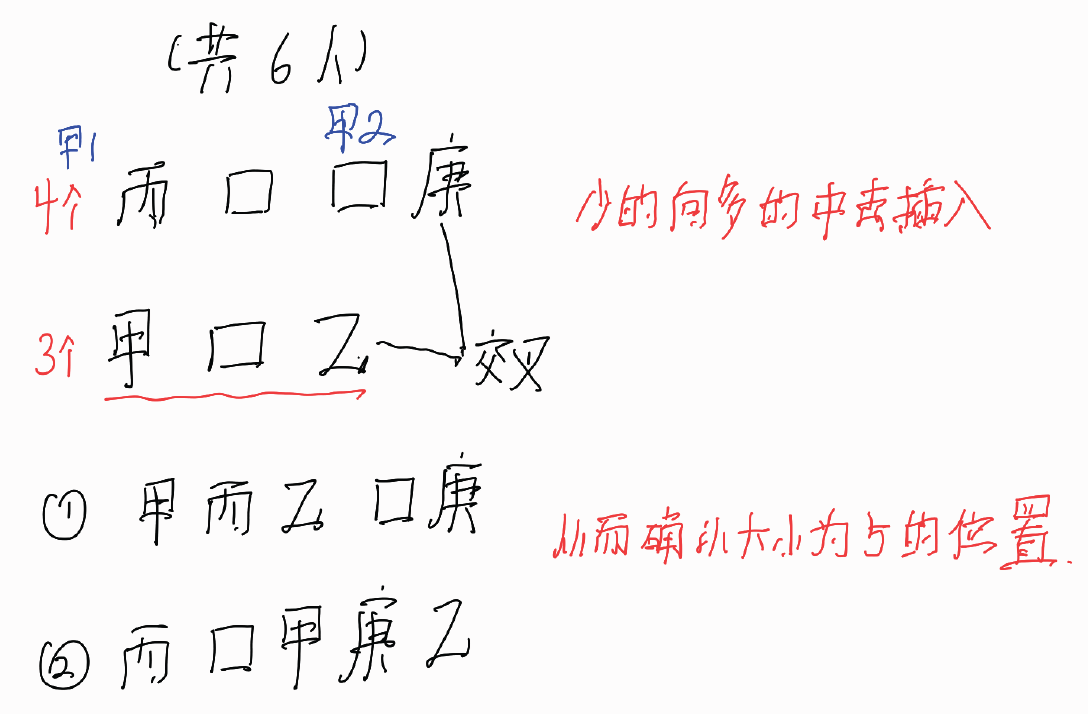 (共6人)
甲1 甲2
4个 丙 口 口 庚 少的向多的中去插入
3个 甲 口 乙 交叉
① 甲 丙 乙 口 庚
从而确认大小为5的位置.
② 丙 口 甲 庚 乙